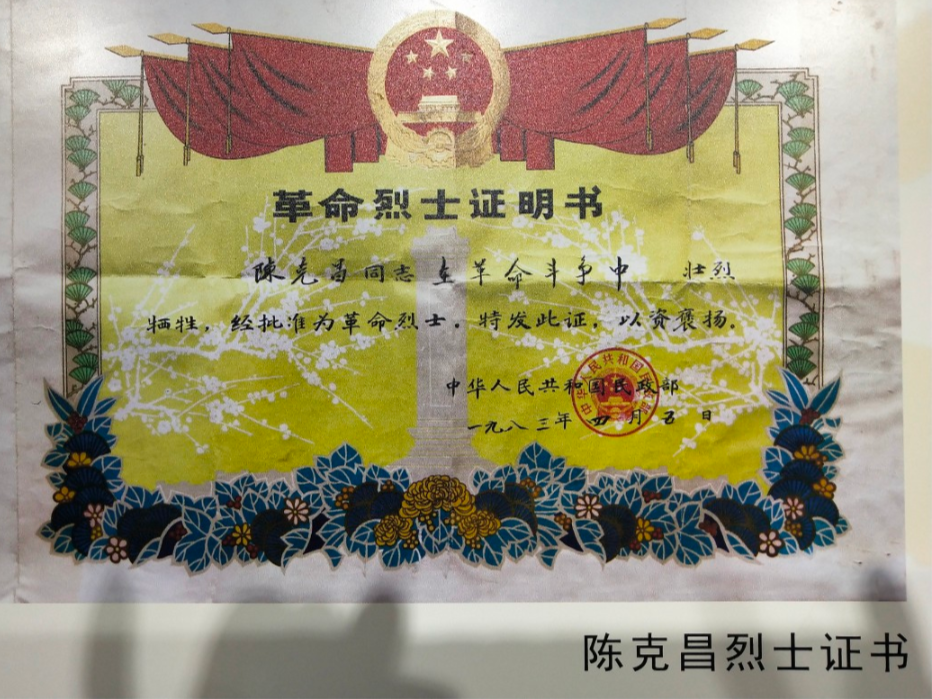 革命烈士证明书
陳克昌同志在革命斗争中 壮烈
牺牲，经批准为革命烈士。特发此证，以资褒扬。
中华人民共和国民政部
一九八三年四月五日
中华人民共和国民政部
陈克昌烈士证书